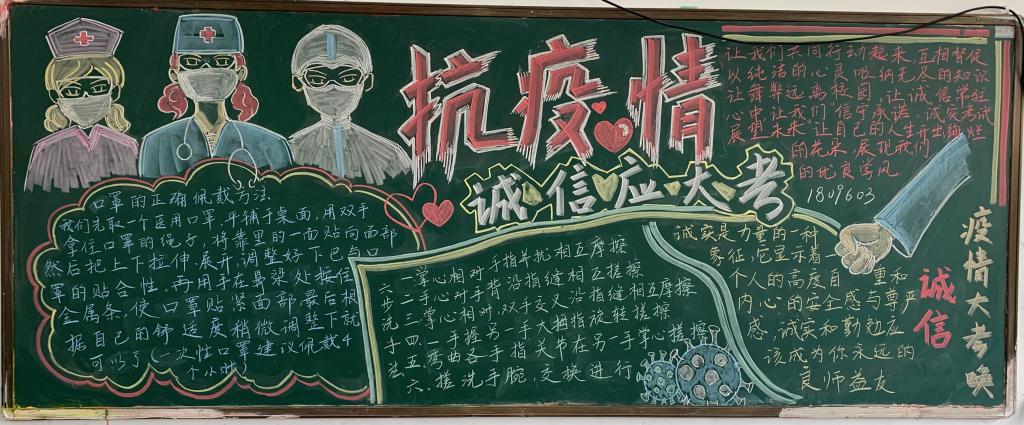 抗疫情
诚信应大考
让我们共同行动起来,互相督促
以纯洁的心灵吸纳无尽的知识
让舞弊远离校园,让诚信常驻
心中,让我们信守承诺,诚实考试
展望未来,让自己的人生开出绚烂
的花朵,展现我们
的优良学风
1809603
口罩的正确佩戴方法
我们先取一个医用口罩,平铺于桌面,用双手
拿住口罩的绳子,将靠里的一面贴向面部
然后把上下拉伸展开,调整好下巴与口
罩的贴合性,再用手在鼻梁处按住
金属条,使口罩贴紧面部最后根
据自己的舒适度稍微调整下就
可以了(一次性口罩建议佩戴4
个小时)
六步洗手法
一、掌心相对手指并拢相互摩擦
二、手心对手背沿指缝相互搓擦
三、掌心相对双手交叉沿指缝相互摩擦
四、一手握另一手大拇指旋转搓擦
五、弯曲各手指关节在另一手掌心搓擦
六、搓洗手腕,交换进行
诚实是力量的一种
象征,它显示着
个人的高度自重和
内心的安全感与尊严
感,诚实和勤勉应
该成为你永远的
良师益友
疫情大考唤
诚信